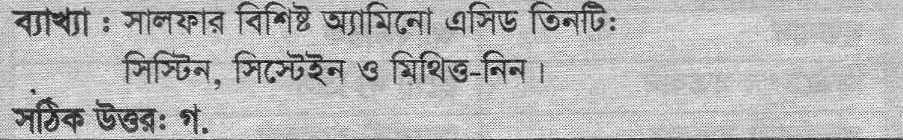 ব্যাখ্যা : সালফার বিশিষ্ট অ্যামিনো এসিড তিনটি:
সিস্টিন, সিস্টেইন ও মিথিও-নিন।
সঠিক উত্তর: গ.